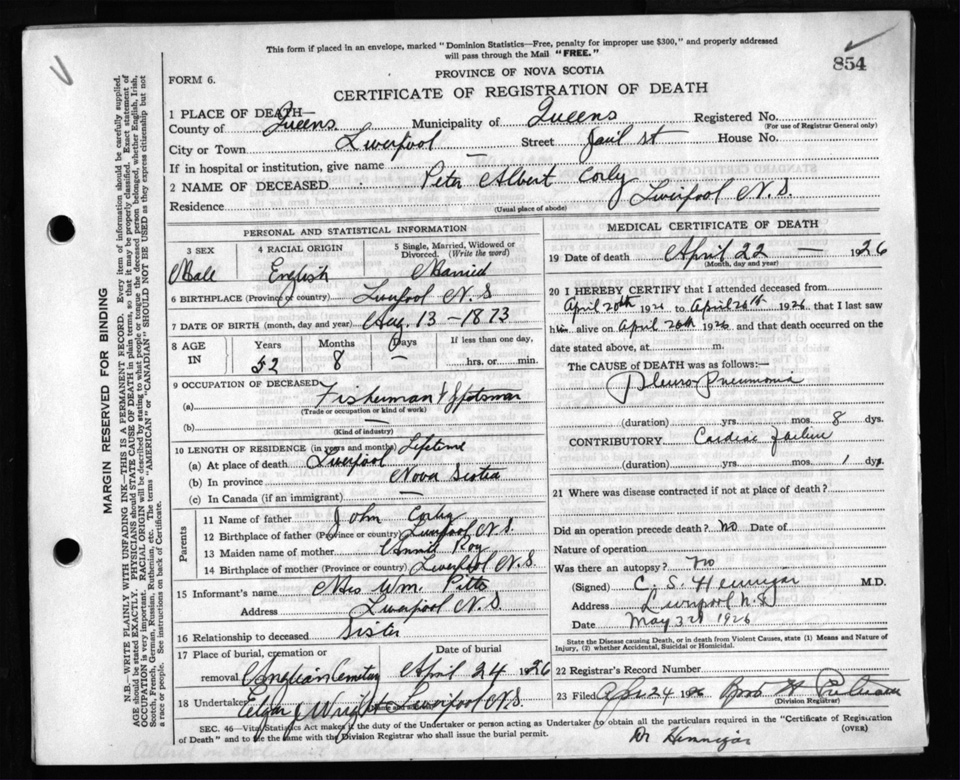 This form if placed in an envelope, marked "Dominion Statistics—Free, penalty for improper use $300," and properly addressed
will pass through the Mail "FREE."
854
FORM 6.
PROVINCE OF NOVA SCOTIA
CERTIFICATE OF REGISTRATION OF DEATH
MARGIN RESERVED FOR BINDING
N.B.—WRITE PLAINLY WITH UNFADING INK—THIS IS A PERMANENT RECORD. Every item of information should be carefully supplied.
AGE should be stated EXACTLY. PHYSICIANS should STATE CAUSE OF DEATH in plain terms, so that it may be properly classified. Exact statement of
OCCUPATION is very important. RACIAL ORIGIN will be described by stating to what people or tongue the deceased person belonged, whether English, Irish,
Scotch, French, German, Russian, Ruthenian, etc. The terms "AMERICAN" or "CANADIAN" SHOULD NOT BE USED as they express citizenship but not
a race or people. See instructions on back of Certificate.
1 PLACE OF DEATH—
County of Queens Municipality of Queens Registered No.
(For use of Registrar General only)
City or Town Liverpool Street Jail St House No.
If in hospital or institution, give name —
2 NAME OF DECEASED Peter Albert Corby
Residence Liverpool N.S
(Usual place of abode)
PERSONAL AND STATISTICAL INFORMATION
3 SEX Male
4 RACIAL ORIGIN English
5 Single, Married, Widowed or Divorced. (Write the word) Married
6 BIRTHPLACE (Province or country) Liverpool N.S
7 DATE OF BIRTH (month, day and year) Aug 13 - 1873
8 AGE IN Years 52 Months 8 Days — If less than one day, hrs. or min.
9 OCCUPATION OF DECEASED
(a) Fisherman &
(Trade or occupation or kind of work)
(b) —
(Kind of industry)
10 LENGTH OF RESIDENCE (in years and months) Lifetime
(a) At place of death Liverpool
(b) In province Nova Scotia
(c) In Canada (if an immigrant) —
Parents
11 Name of father John Corby
12 Birthplace of father (Province or country) Liverpool N.S.
13 Maiden name of mother Annie Roy
14 Birthplace of mother (Province or country) Liverpool N.S.
15 Informant's name Mrs Wm. Pitts
Address Liverpool N.S.
16 Relationship to deceased Sister
17 Place of burial, cremation or removal Anglican Cemetery
Date of burial April 24 1926
18 Undertaker Edgar J Wright Liverpool N.S.
MEDICAL CERTIFICATE OF DEATH
19 Date of death April 22 — 1926
(Month, day and year)
20 I HEREBY CERTIFY that I attended deceased from
April 20th 1926 to April 20th 1926 that I last saw
him alive on April 20th 1926 and that death occurred on the
date stated above, at m.
The CAUSE OF DEATH was as follows:—
Pleuro Pneumonia
(duration) yrs. mos. 8 dys.
CONTRIBUTORY Cardiac failure
(duration) yrs. mos. 1 dys.
21 Where was disease contracted if not at place of death?
Did an operation precede death? no Date of
Nature of operation
Was there an autopsy? no
(Signed) C. S. Hennigar M.D.
Address Liverpool N.S
Date May 3rd 1926
State the Disease causing Death, or in death from Violent Causes, state (1) Means and Nature of
Injury, (2) whether Accidental, Suicidal or Homicidal.
22 Registrar's Record Number
23 Filed Apr 24 1926
(Division Registrar)
SEC. 46—Vital Statistics Act makes it the duty of the Undertaker or person acting as Undertaker to obtain all the particulars required in the "Certificate of Registration
of Death" and to file the same with the Division Registrar who shall issue the burial permit.
(OVER)
Dr Hennigar